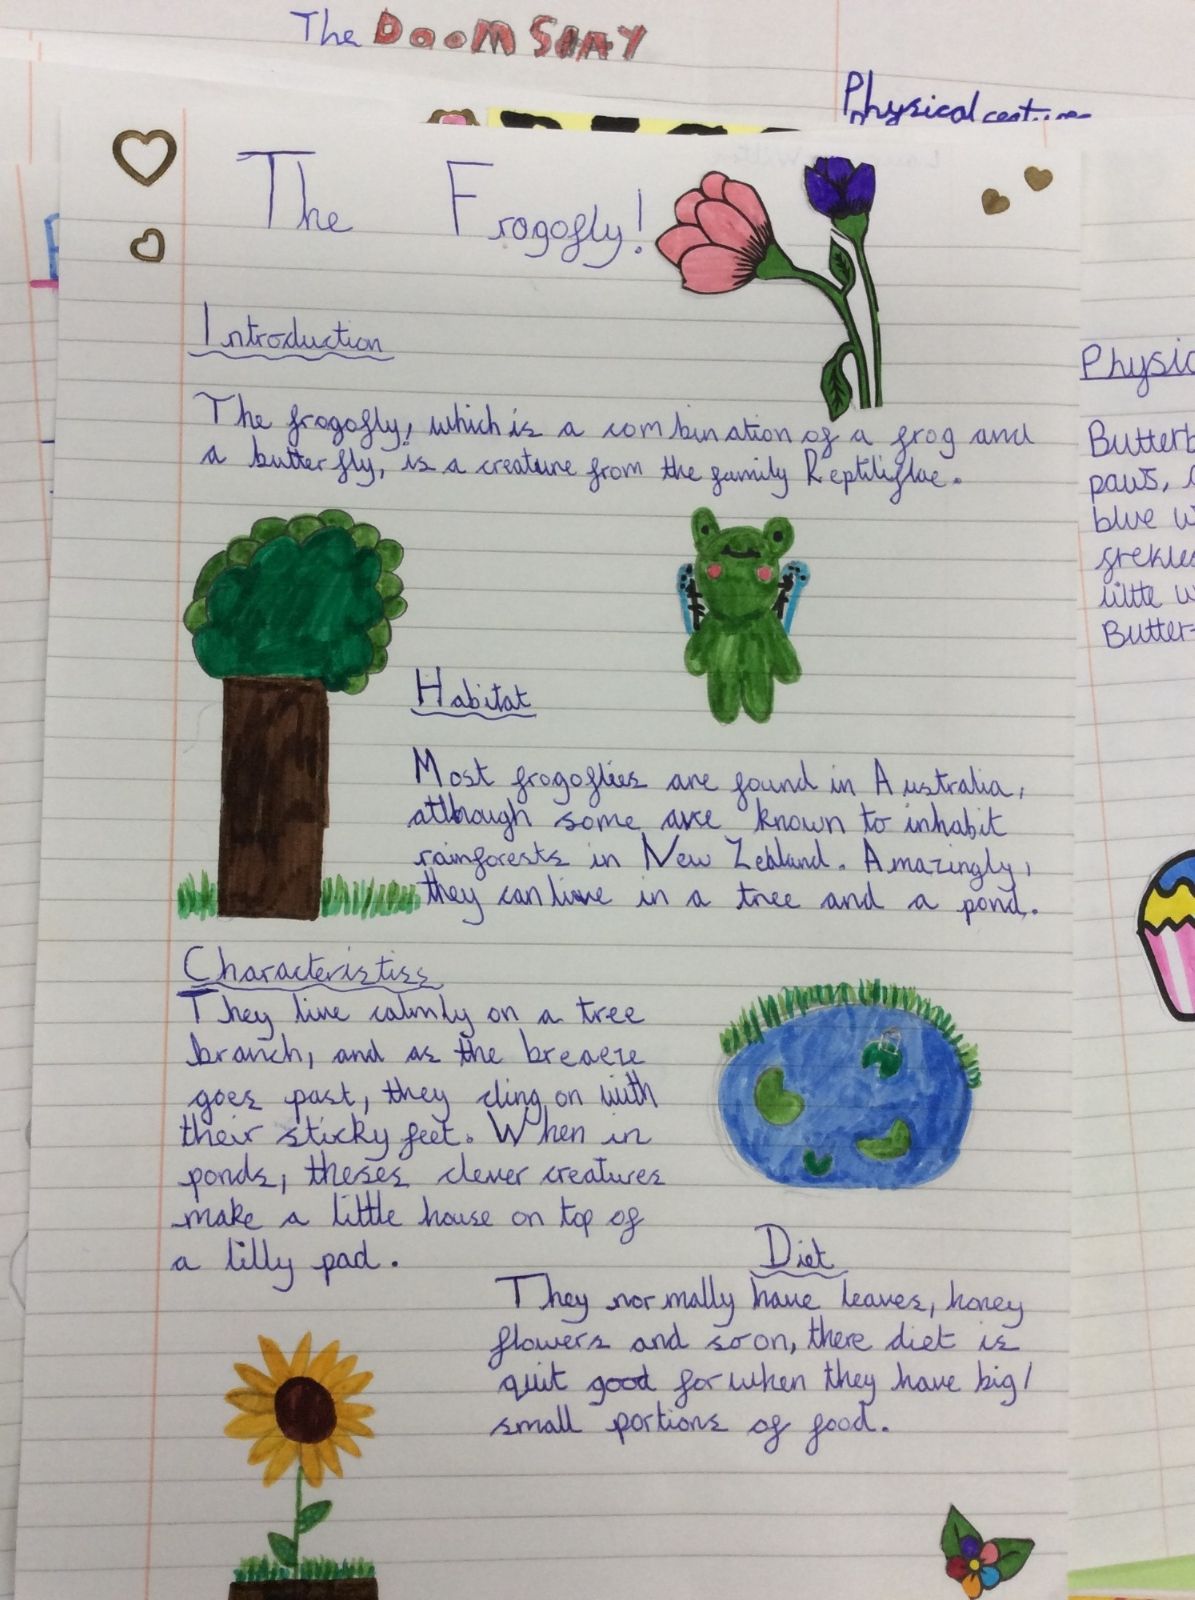 The DOOM
Physical
The Frogofly!
Introduction
The frogofly, which is a combination of a frog and
a butterfly, is a creature from the family
Habitat
Most frogoflies are found in Australia,
although some are known to inhabit
rainforests in New Zealand. Amazingly,
they can live in a tree and a pond.
Characteristiss
They live calmly on a tree
branch, and as the breaeze
goes past, they cling on with
their sticky feet. When in
ponds, theses clever creatures
make a little house on top of
a lilly pad.
Diet
They normally have leaves, honey
flowers and so on, there diet is
quit good for when they have big/
small portions of food.
Physic
Butterb
paws,
blue w
frekles
little w
Butter-